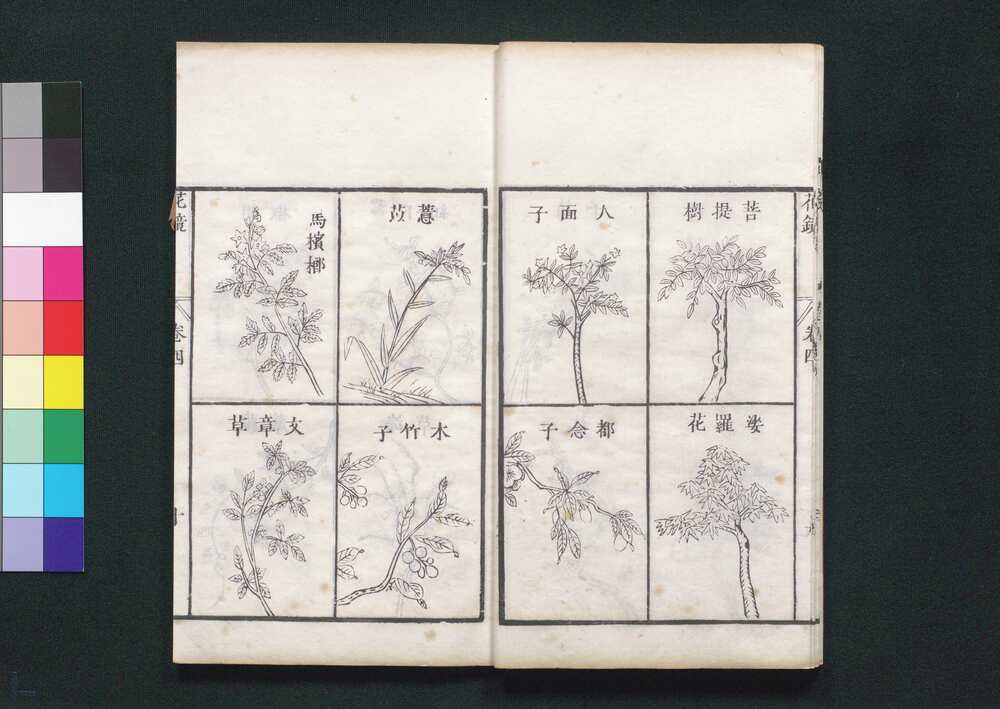 花鏡
卷四
菩提樹
人面子
娑羅花
都念子
薏苡
馬檳榔
木竹子
文章草
花鏡
卷四
十